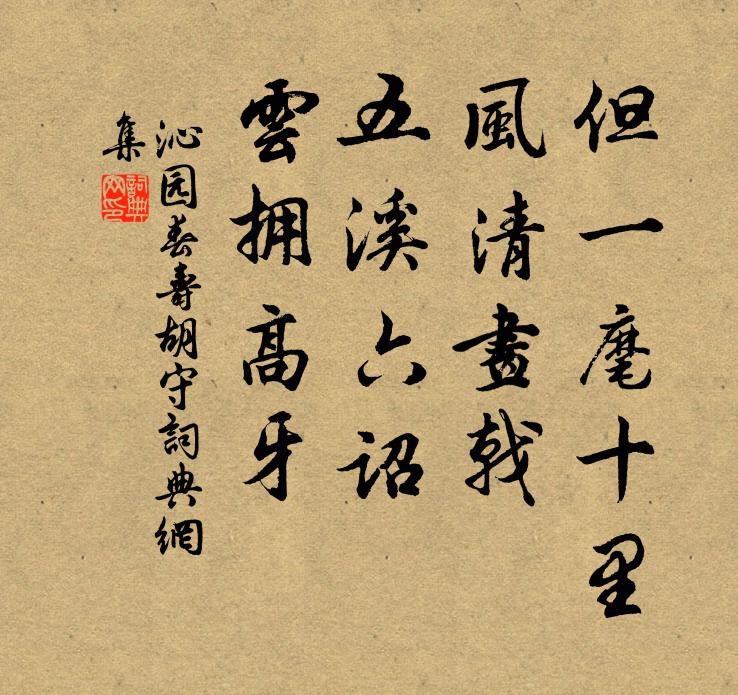 但一麾十里
風清畫戟
五溪六詔
雲拥高牙
沁园春壽胡守詞典網
集
詞典
网印